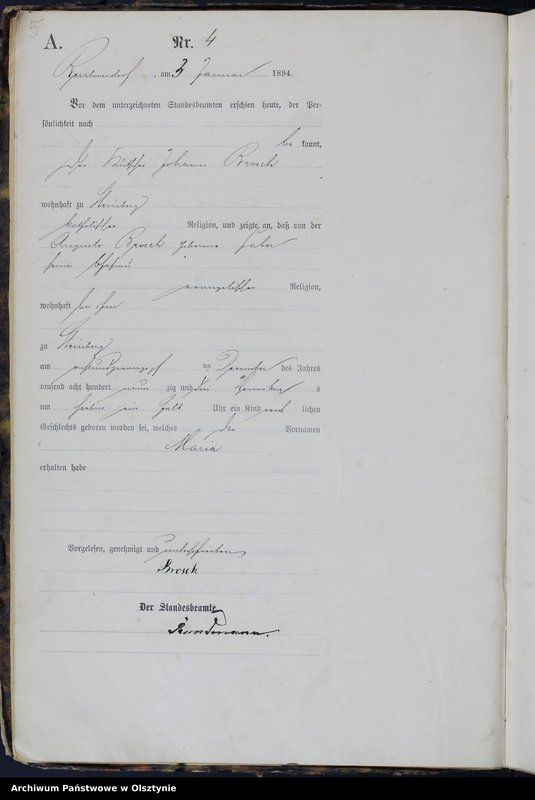 5
A. Nr. 4
am 3 Januar 1894.
Vor dem unterzeichneten Standesbeamten erschien heute, der Per-
sönlichkeit nach
be kannt,
der Kutscher Johann Brosch
wohnhaft zu Steinberg
katholischer Religion, und zeigte an, daß von der
Auguste Brosch geborene
seiner Ehefrau
evangelischer Religion,
wohnhaft bei ihm
zu Steinberg
am achtundzwanzigsten Dezember des Jahres
tausend acht hundert neun zig und drei Vormittag s
um sieben ein halb Uhr ein Kind weib lichen
Geschlechts geboren worden sei, welches den Vornamen
Maria
erhalten habe
Vorgelesen, genehmigt und unterschrieben
Brosch
Der Standesbeamte
Archiwum Państwowe w Olsztynie